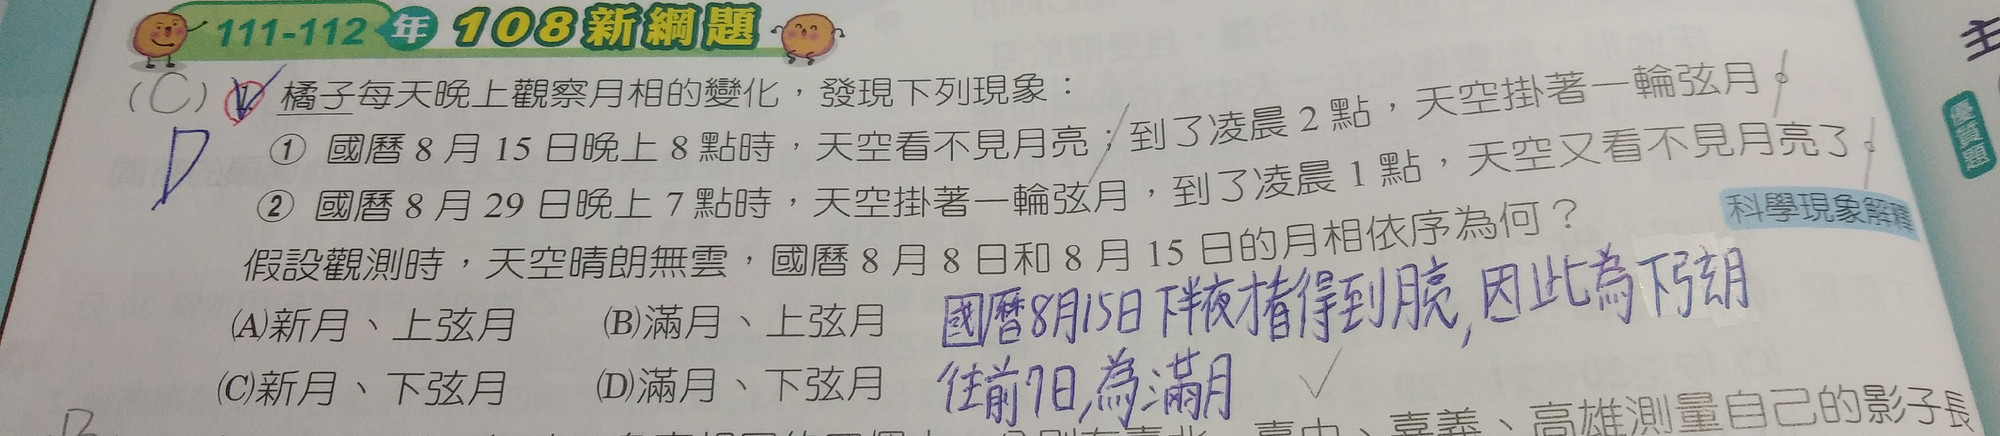 111-112年 108新綱題
(C) 1. 橘子每天晚上觀察月相的變化，發現下列現象：
D
① 國曆 8 月 15 日晚上 8 點時，天空看不見月亮；到了凌晨 2 點，天空掛著一輪弦月。
② 國曆 8 月 29 日晚上 7 點時，天空掛著一輪弦月，到了凌晨 1 點，天空又看不見月亮了。
假設觀測時，天空晴朗無雲，國曆 8 月 8 日和 8 月 15 日的月相依序為何？
科學現象解釋
(A)新月、上弦月 (B)滿月、上弦月
(C)新月、下弦月 (D)滿月、下弦月
國曆8月15日下半夜才看得到月亮,因此為下弦月
往前7日,為滿月
嘉義、高雄測量自己的影子長
主
優質題